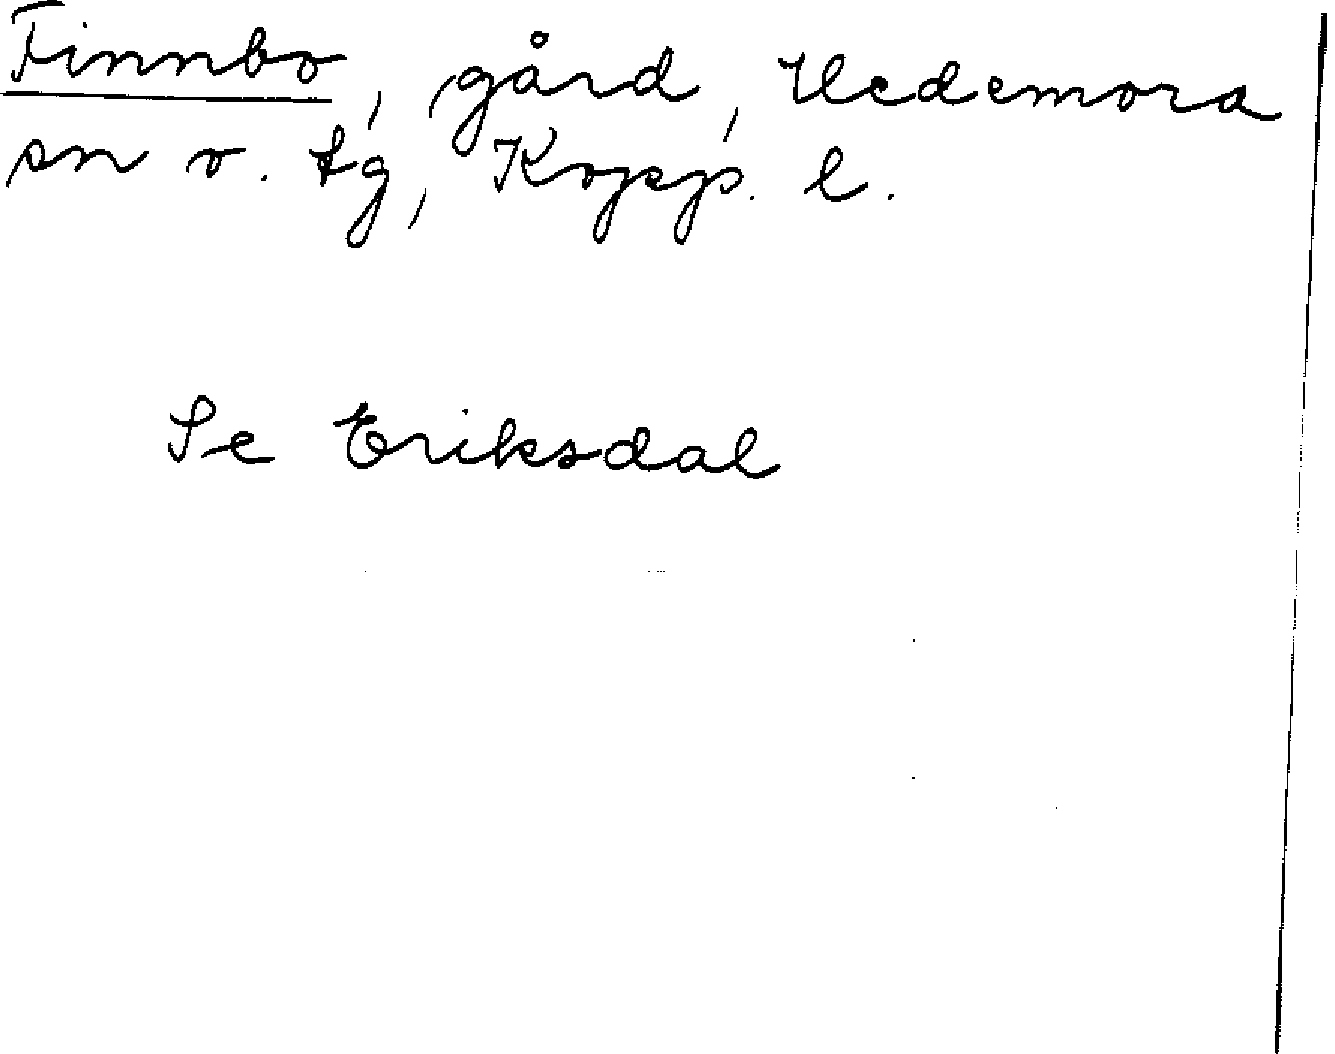 Finnbo, gård, Hedemora
sn o. tg, Kopp. l.
Se Eriksdal